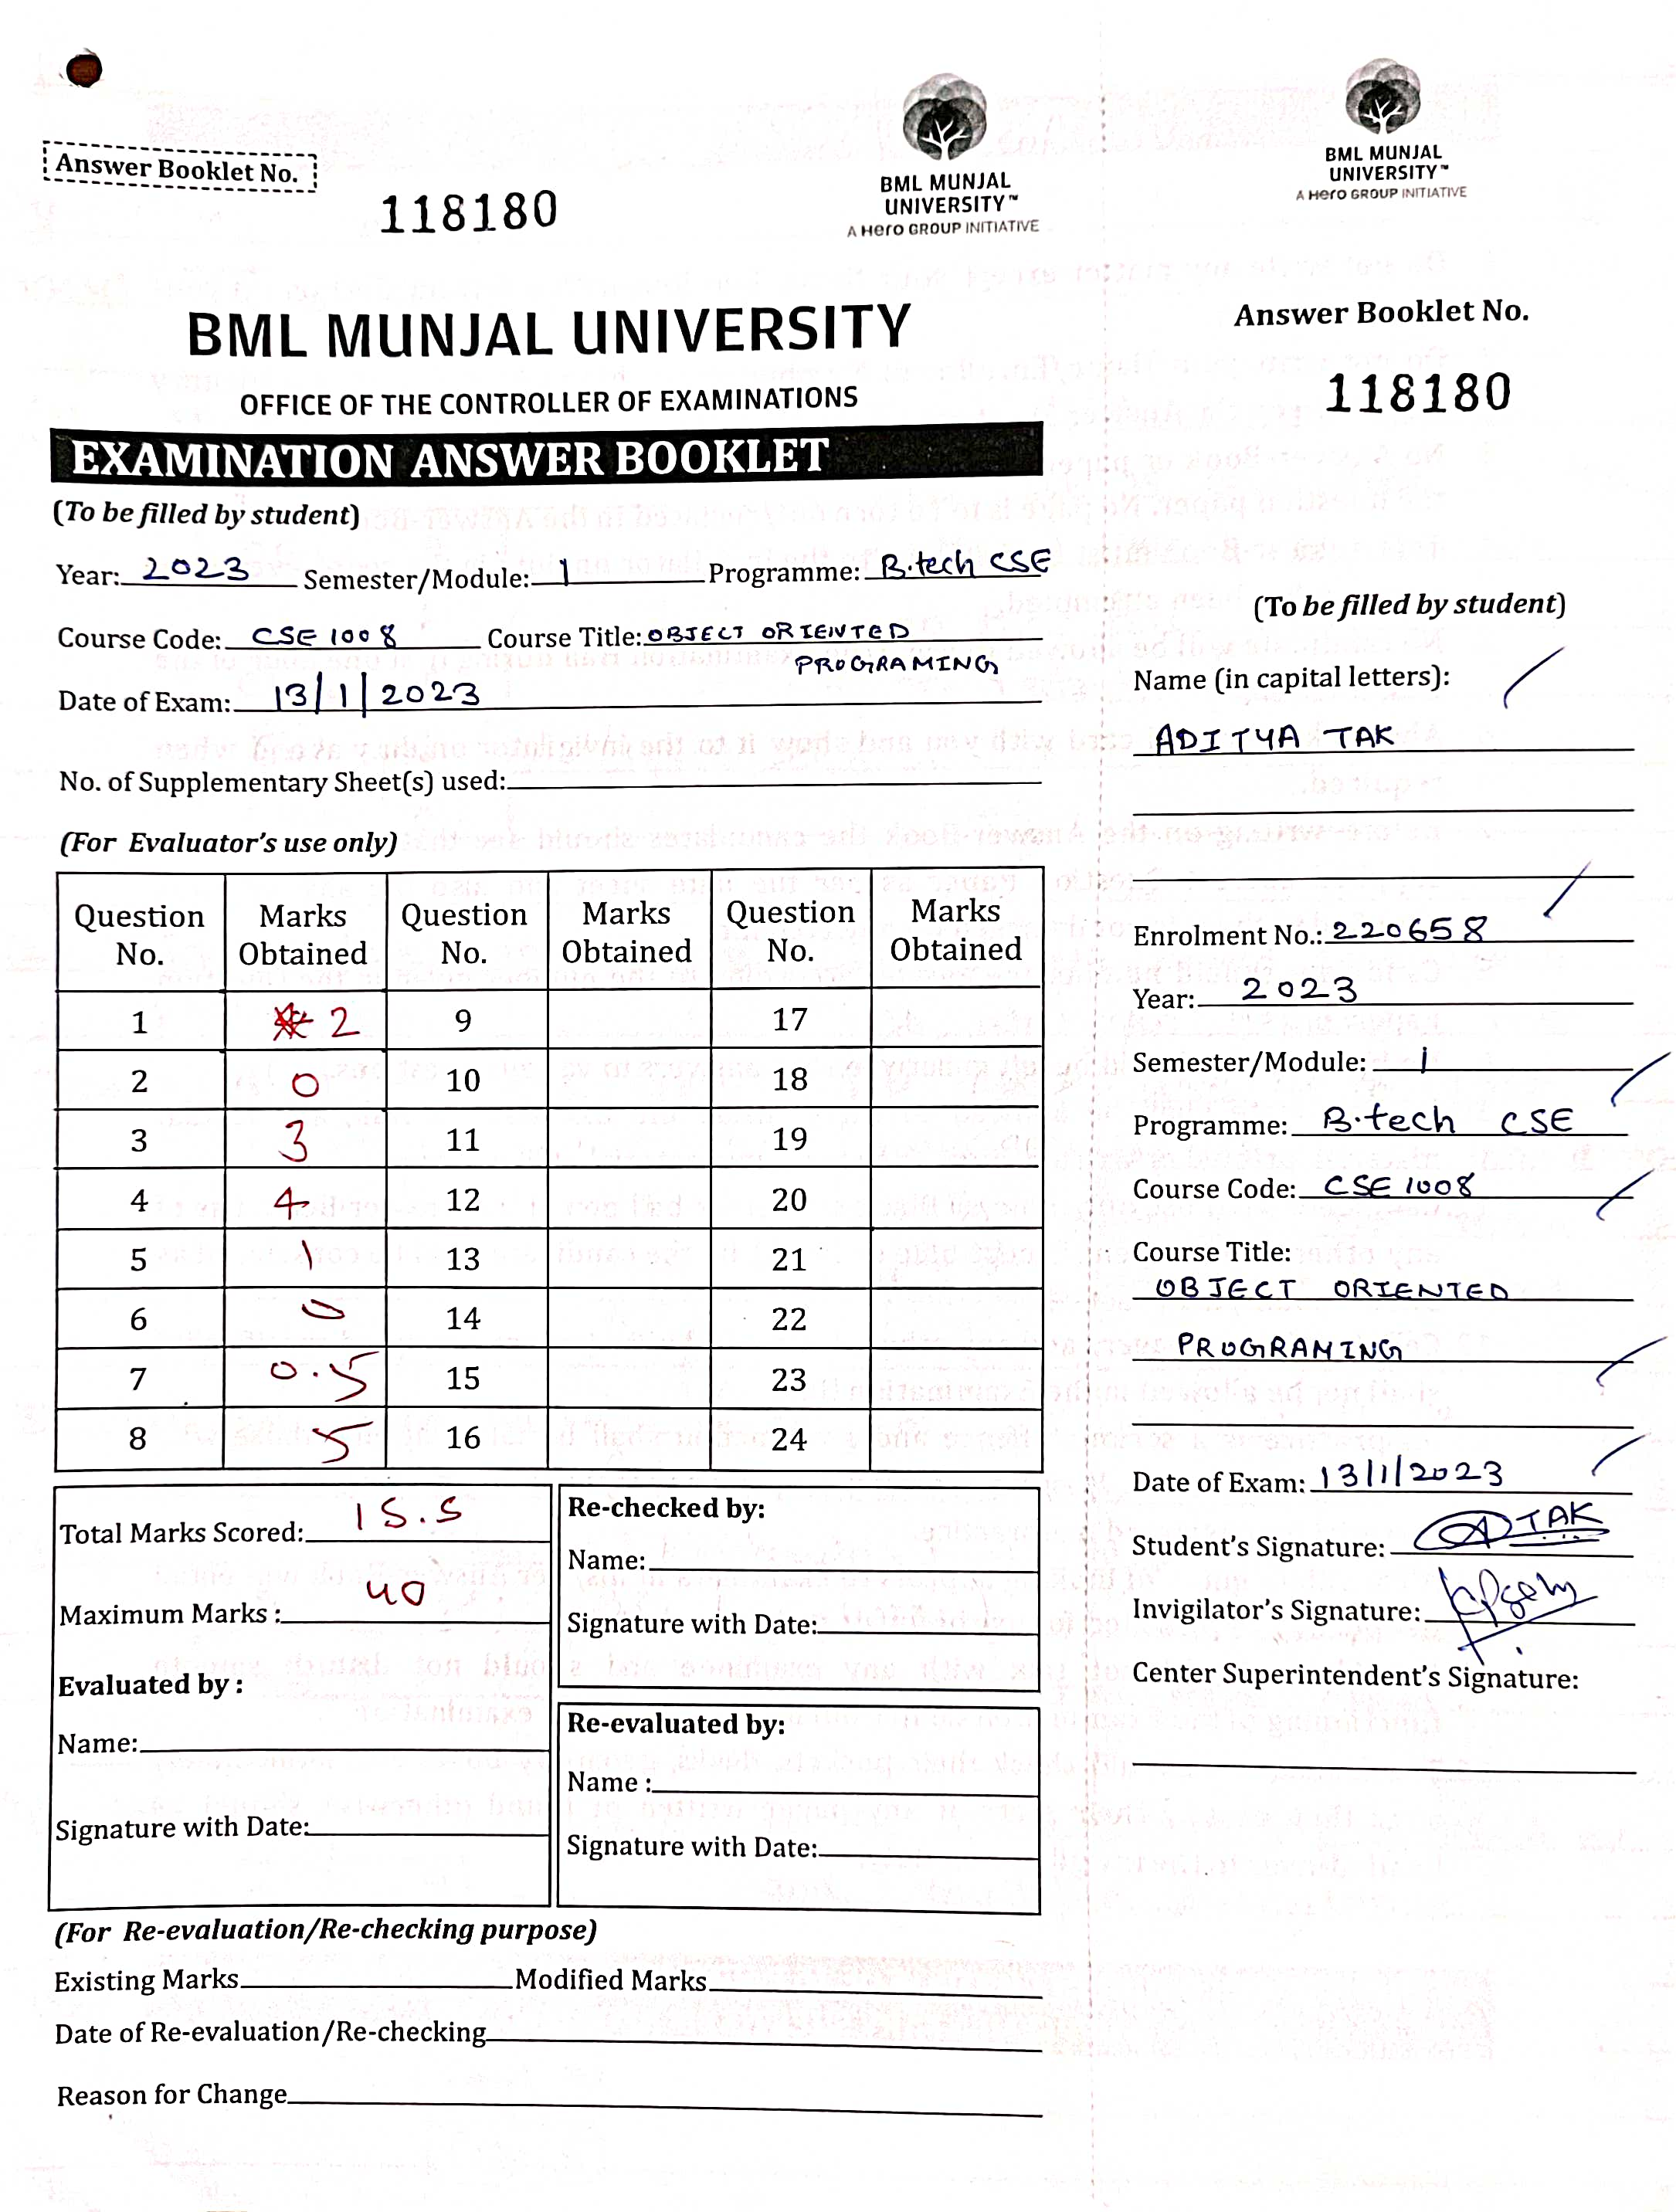 Answer Booklet No.
118180
BML MUNJAL
UNIVERSITY™
A Hero GROUP INITIATIVE
BML MUNJAL UNIVERSITY
OFFICE OF THE CONTROLLER OF EXAMINATIONS
EXAMINATION ANSWER BOOKLET
(To be filled by student)
Year: 2023 Semester/Module: 1 Programme: B.tech CSE
Course Code: CSE 1008 Course Title: OBJECT ORIENTED
PROGRAMING
Date of Exam: 13/1/2023
No. of Supplementary Sheet(s) used:
(For Evaluator's use only)
Question No. Marks Obtained Question No. Marks Obtained Question No. Marks Obtained
1 2 9 17
2 0 10 18
3 3 11 19
4 4 12 20
5 1 13 21
6 0 14 22
7 0.5 15 23
8 5 16 24
Total Marks Scored: 15.5
Maximum Marks : 40
Evaluated by :
Name:
Signature with Date:
Re-checked by:
Name:
Signature with Date:
Re-evaluated by:
Name :
Signature with Date:
(For Re-evaluation/Re-checking purpose)
Existing Marks Modified Marks
Date of Re-evaluation/Re-checking
Reason for Change
BML MUNJAL
UNIVERSITY™
A Hero GROUP INITIATIVE
Answer Booklet No.
118180
(To be filled by student)
Name (in capital letters):
ADITYA TAK
Enrolment No.: 220658
Year: 2023
Semester/Module: 1
Programme: B.tech CSE
Course Code: CSE 1008
Course Title:
OBJECT ORIENTED
PROGRAMING
Date of Exam: 13/1/2023
Student's Signature: TAK
Invigilator's Signature:
Center Superintendent's Signature: